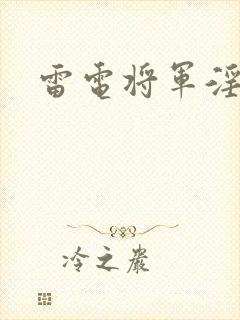 雷電将軍淫
冷之巖